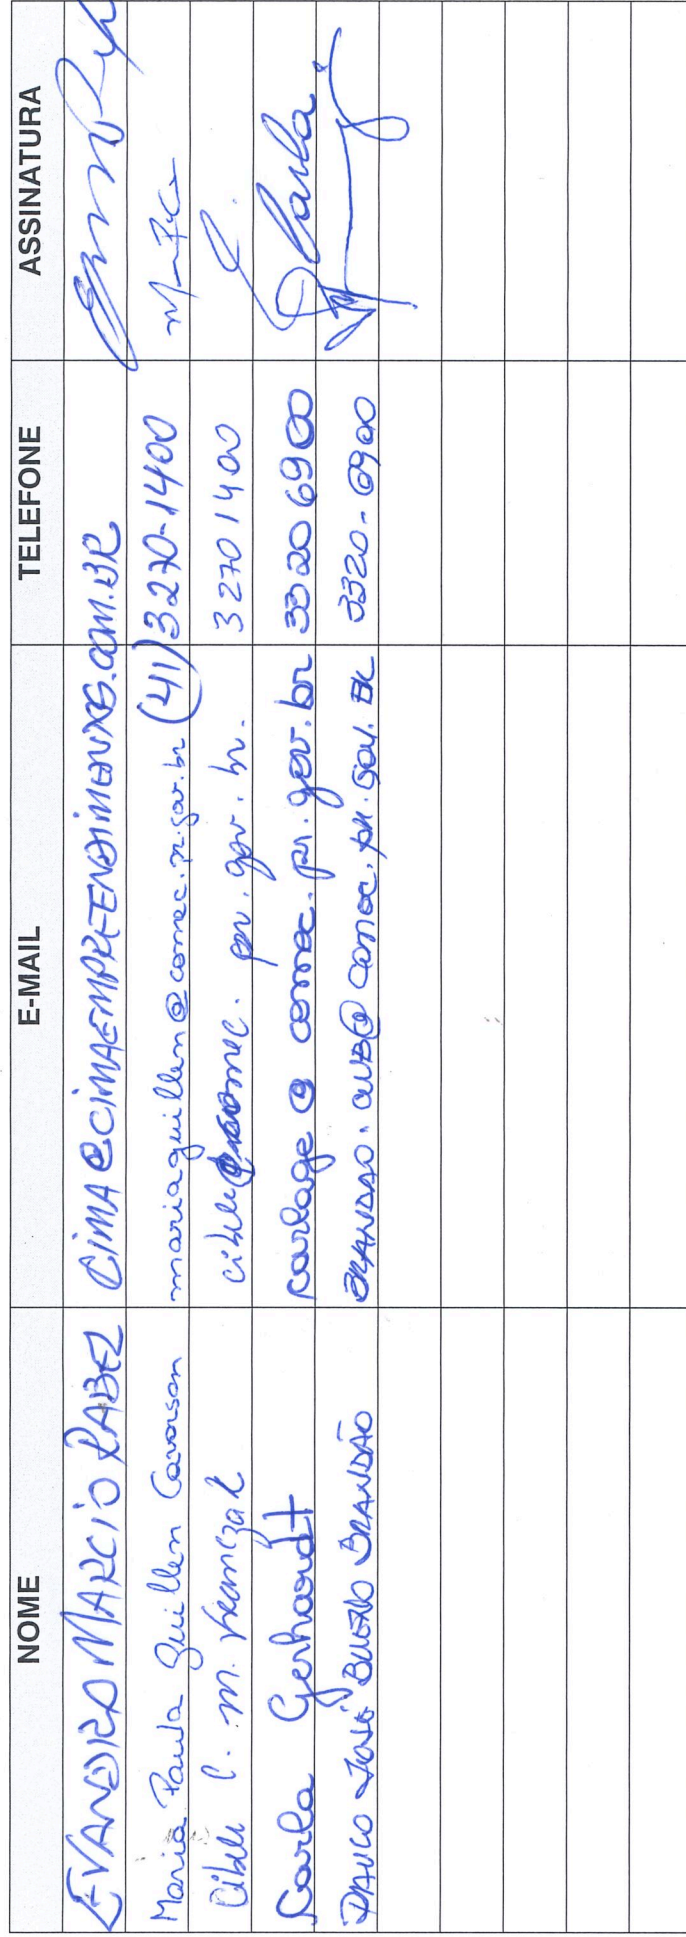 NOME E-MAIL TELEFONE ASSINATURA
EVANDRO MARCIO RABEL CIMA@CIMAEMPREENDIMENTOS.COM.BR
Maria Paula Quillen Cavarsan mariaquillen@comec.pr.gov.br (41) 3270-1400
Cibele C. M. cibele@comec.pr.gov.br. 32701400
Carla Gerhardt carlage@comec.pr.gov.br 33206900 Carla
PAULO JOSÉ BUENO BRANDÃO BRANDAO.CWB@comec.pr.gov.BR 3320-6900